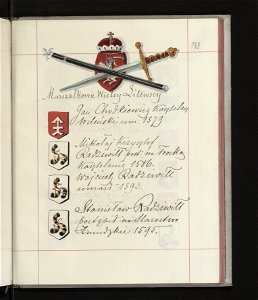 Marszałkowie Wielcy Litewscy
Jan Chodkiewicz Kasztelan
Wileński um. 1579
Mikołaj Krzysztof
Radziwiłł
Kasztelanię 1586.
Wojciech Radziwiłł
umarł 1593.
Stanisław Radziwiłł
postąpił na Starostwo
Żmudzkie 1595.